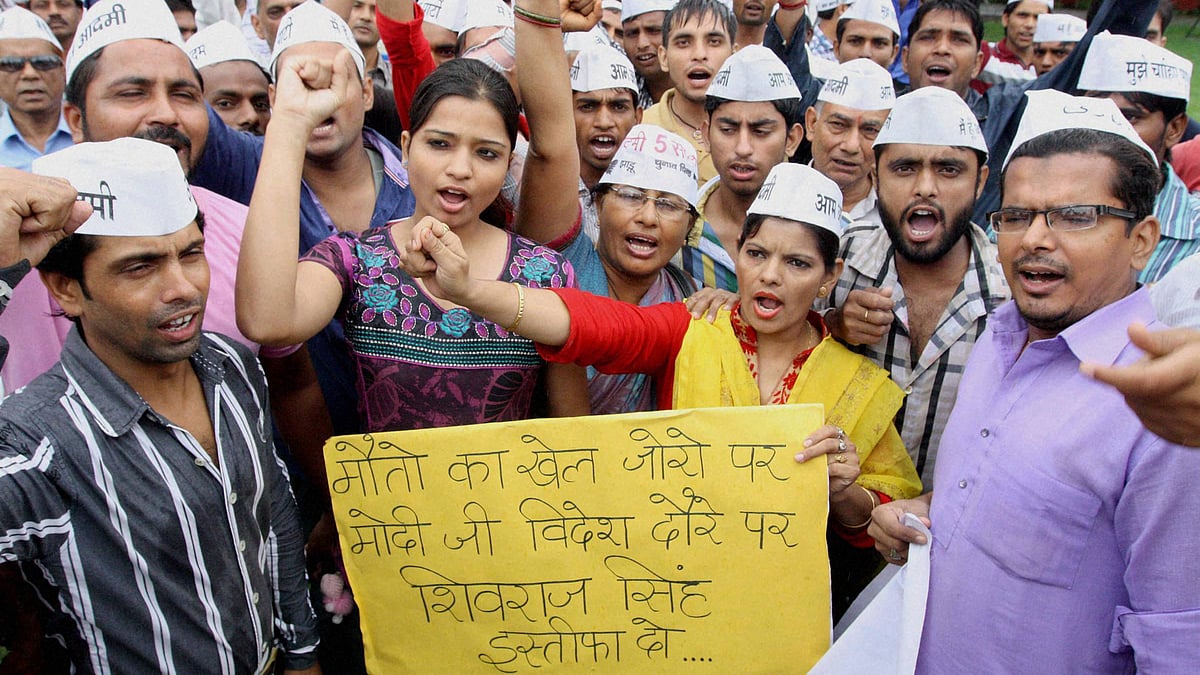 आदमी
आम
मुझे चाहिए
5 स
चुनाव चिन्ह
झाड़ू
आम
मौतो का खेल जोरो पर
मोदी जी विदेश दौरे पर
शिवराज सिंह
इस्तीफा दो....